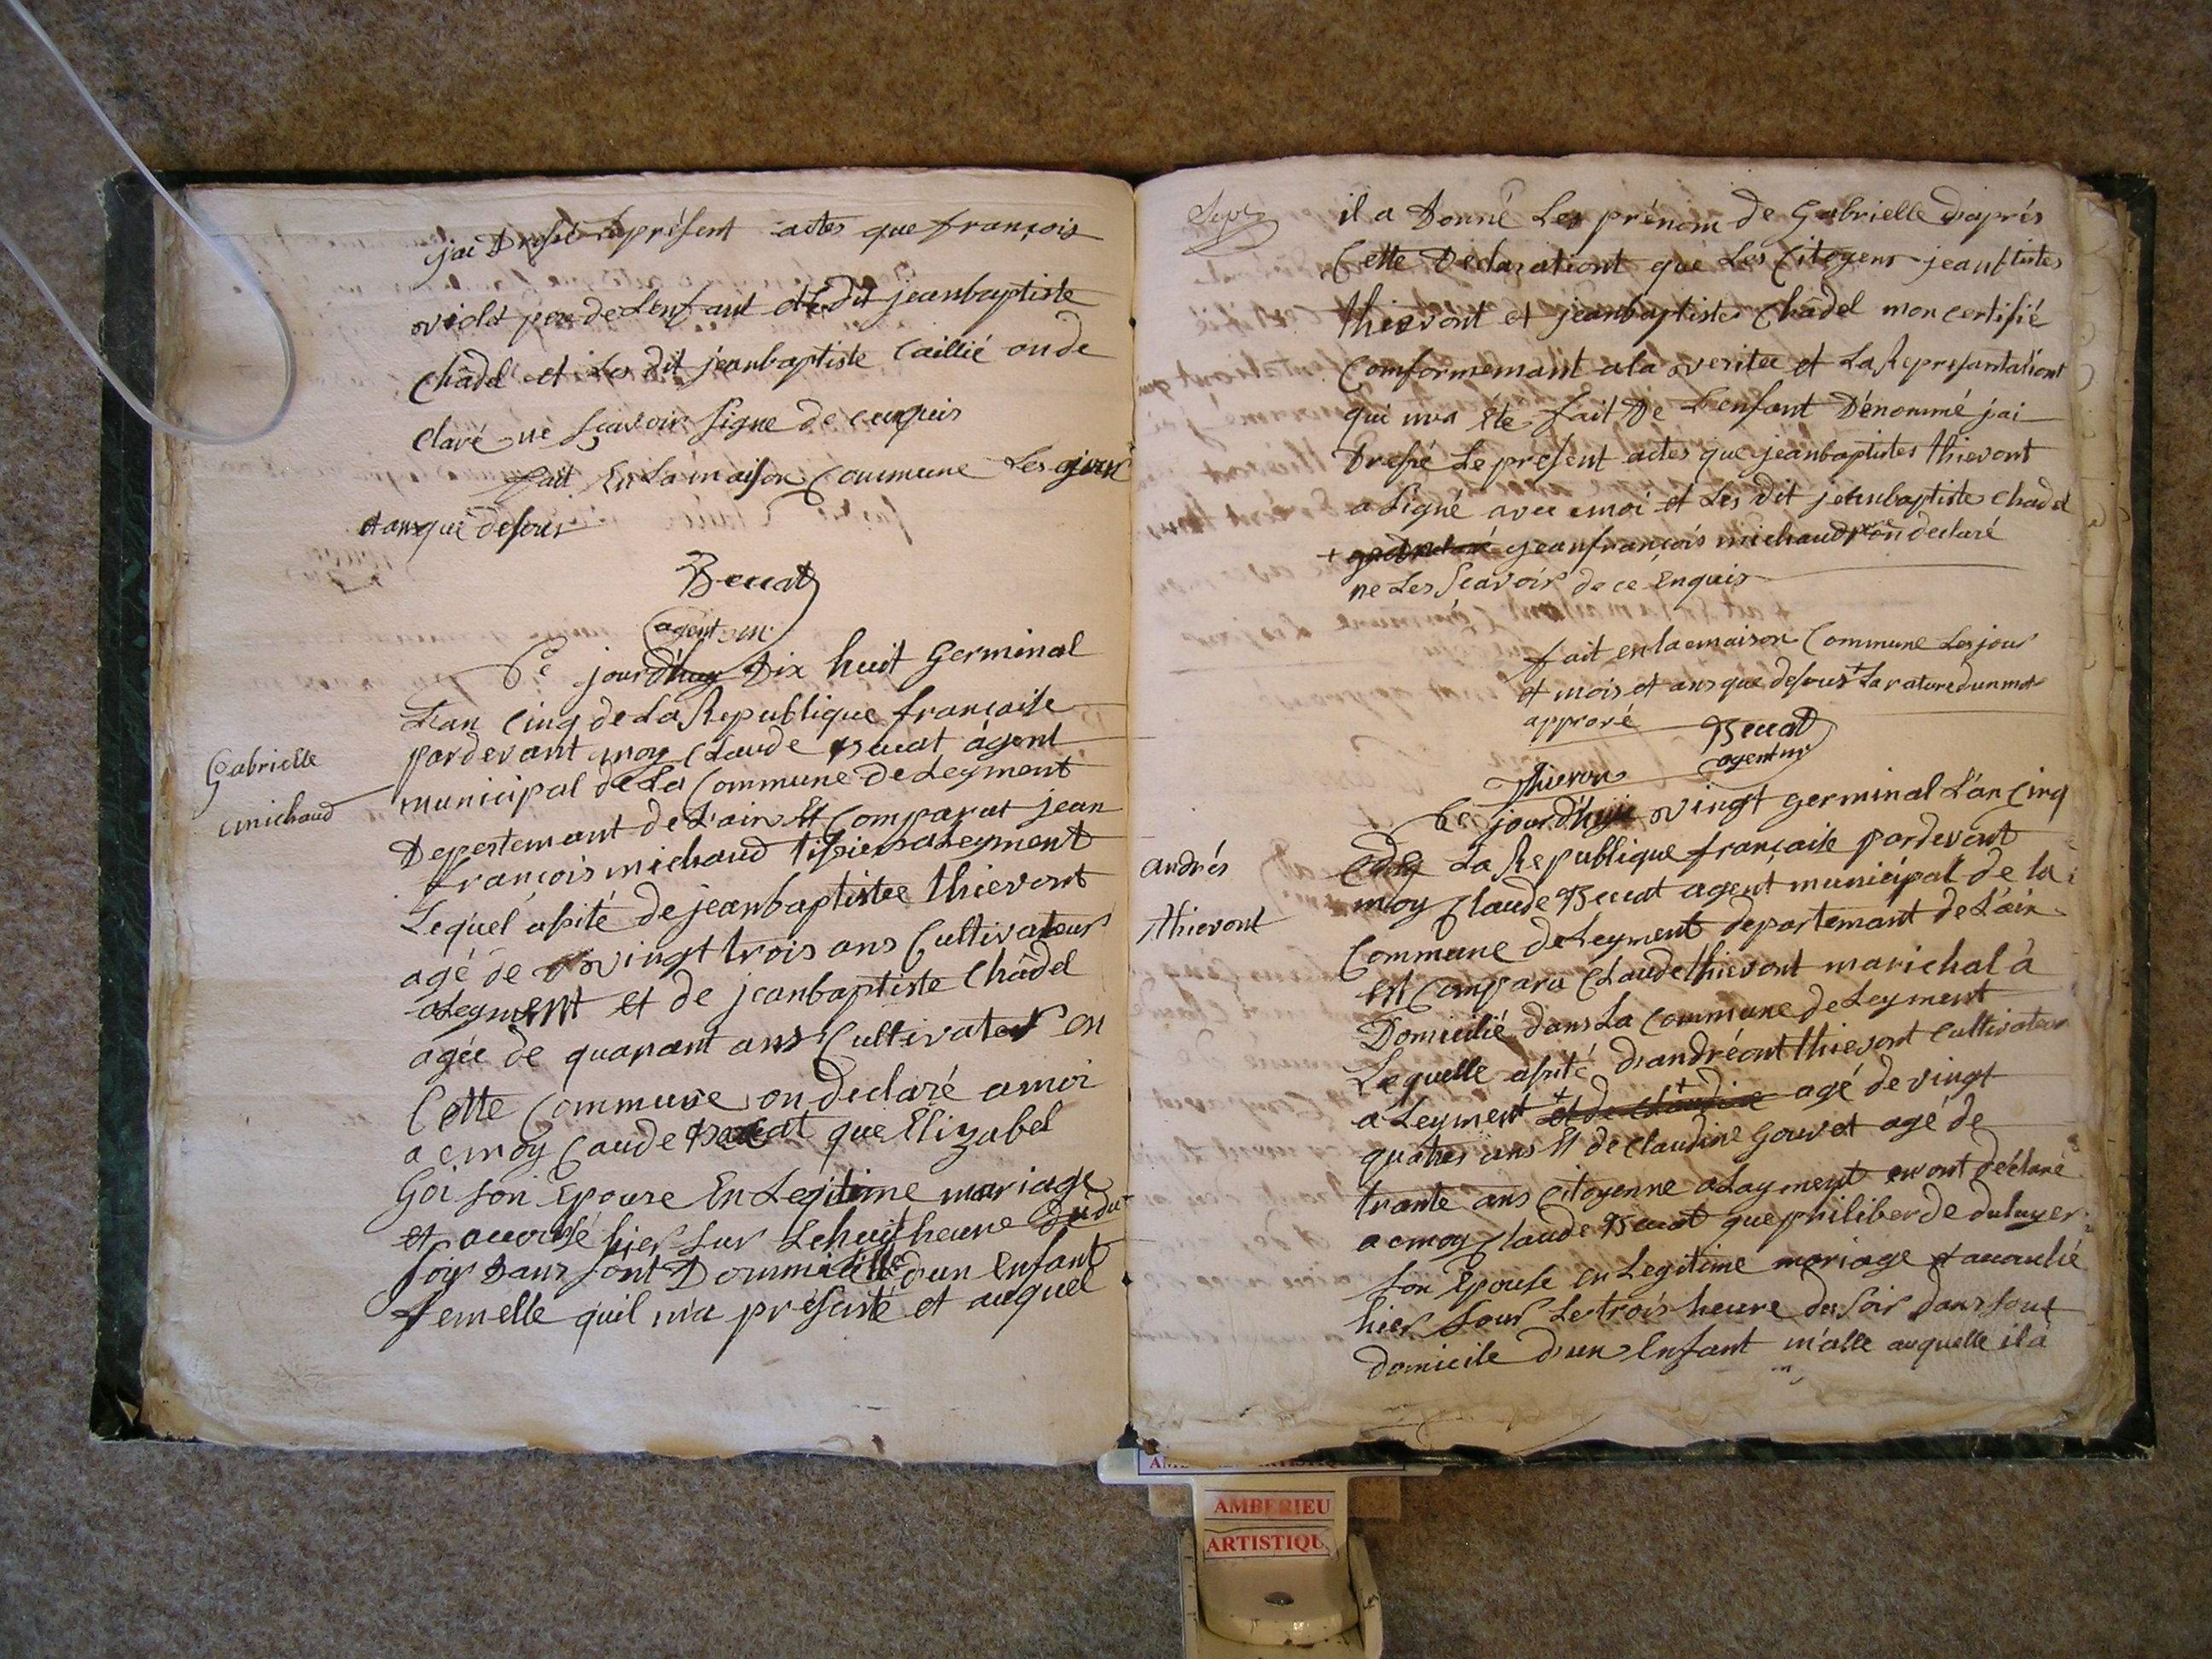 jai Dressé Le présent actes que françois
violet père de Lenfant et Le dit jeanbaptiste
Châdel et Les dit jeanbaptiste Caillié on de
claré ne sçavoir signe de ce enquis
fait En La maison Commune Les jour
et an que desous
Beccat
agent m
Ce jourd'huy Dix huit Germinal
Lan Cinq de La Republique française
pardevant moy Claude Beccat agent
municipal de La Commune de Leyment
Departemant de L'ain Et Comparut jean
françois michaud tisier a Leyment
Lequel asité de jeanbaptistee thievont
agé de vingt trois ans Cultivateur
a Leyment et de jeanbaptiste Châdel
agée de quarant ans Cultivateur en
Cette Commune on declaré a moi
a moy Caude Beccat que Elizabel
Goi son Epouse En Legitime mariage
et accouché hier sur Le huit heure du
soir Dans sont Dommicille d'un Enfant
femelle quil m'a présenté et auquel
Gabrielle
michaud
Sept
il a Donné Les prénom de Gabrielle d'aprés
Cette Declarationt que Les Citoyens jean btistes
thievont et jeanbaptistes Châdel mon certifié
Comformemant a la veritee et La Represantationt
qui m'a Eté fait De L'enfant Dénommé jai
Dressé Le present actes que jeanbaptistes thievont
a Signé avec moi et Les dit jeanbaptiste chadel
+ jeanfrançois michaud on declaré
ne Les Scavoir de ce Enquis
fait en la maison Commune Les jour
et mois et ans que desous + La rature d'un mot
apprové Beccat
agent m
Thievon
Ce jourd'huji vingt germinal L'an Cinq
de La Republique française pardevant
moy Claude Beccat agent municipal de la
Commune de Leyment departemant de L'ain
est Comparu Claude thievont marichal à
Domicilié dans La Commune de Leyment
Lequelle asité d'andréont thievont Cultivateur
a Leyment + et de claudine + agé de vingt
quatres ans Et de Claudine Gouvet agé de
trante ans Citoyenne a Layment on ont déclaré
a moy Claude Beccat que philiberde duluyer
son Epouse en Legitime mariage et
hier sour Le trois heure du soir dans sont
domicile d'un Enfant m'alle auquelle il a
andrés
thievont
AMBERIEU
ARTISTIQU